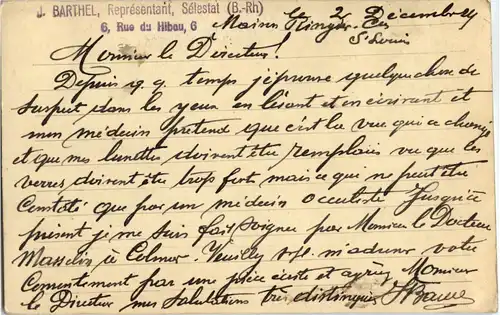 J. BARTHEL, Représentant, Sélestat (B.-Rh)
6, Rue du Hibou, 6
2 Décembre 24
St Louis
Monsieur le Directeur!
Depuis q.q. temps j'éprouve quelque chose de
suspect dans les yeux en lisant et en écrivant et
mon médecin prétend que c'est la vue qui a changé
et que mes lunettes doivent être remplacés vu que les
verres doivent être trop forts mais ce que ne peut être
constaté que par un médecin occuliste Jusqu'à
présent je me suis fait soigner par Monsieur le Docteur
à Colmar. Veuillez s.v.pl. m'adresser votre
Consentement par une pièce écrite et agréez Monsieur
le Directeur mes salutations très distinguées